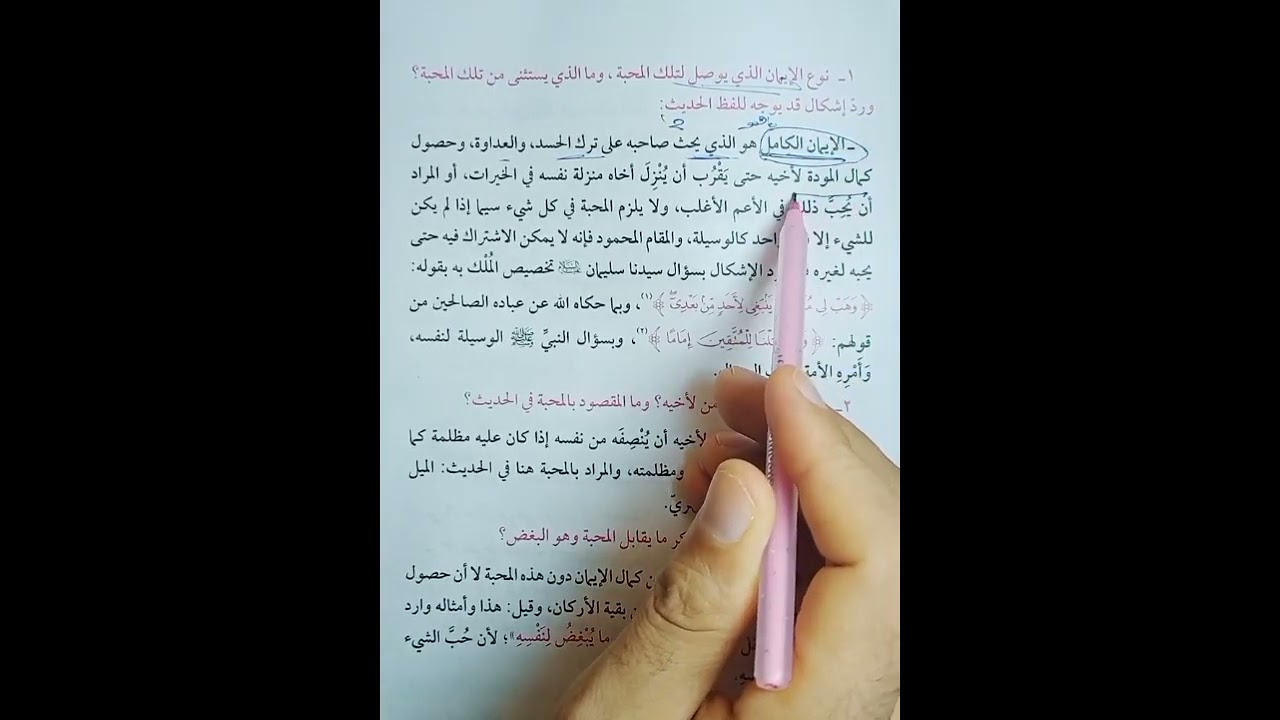 ١ـ نوع الإيمان الذي يوصل لتلك المحبة، وما الذي يستثنى من تلك المحبة؟
وردّ إشكال قد يوجه للفظ الحديث:
ـ الإيمان الكامل هو الذي يحث صاحبه على ترك الحسد، والعداوة، وحصول
كمال المودة لأخيه حتى يَقْرُب أن يُنْزِلَ أخاه منزلة نفسه في الخيرات، أو المراد
أن يُحِبَّ ذلك في الأعم الأغلب، ولا يلزم المحبة في كل شيء سيما إذا لم يكن
للشيء إلا كالوسيلة، والمقام المحمود فإنه لا يمكن الاشتراك فيه حتى
يحبه لغيره الإشكال بسؤال سيدنا سليمان تخصيص المُلْك به بقوله:
﴿وَهَبْ لِي يَنْبَغِي لِأَحَدٍ مِّنْ بَعْدِي﴾(١)، وبما حكاه الله عن عباده الصالحين من
قولهم: ﴿ لِلْمُتَّقِينَ إِمَامًا ﴾(٢)، وبسؤال النبيِّ ﷺ الوسيلة لنفسه،
وَأَمْرِهِ الأمة
٢ـ لأخيه؟ وما المقصود بالمحبة في الحديث؟
لأخيه أن يُنْصِفَه من نفسه إذا كان عليه مظلمة كما
ومظلمته، والمراد بالمحبة هنا في الحديث: الميل
ما يقابل المحبة وهو البغض؟
كمال الإيمان دون هذه المحبة لا أن حصول
بقية الأركان، وقيل: هذا وأمثاله وارد
ما يُبْغِضُ لِنَفْسِهِ»؛ لأن حُبَّ الشيء